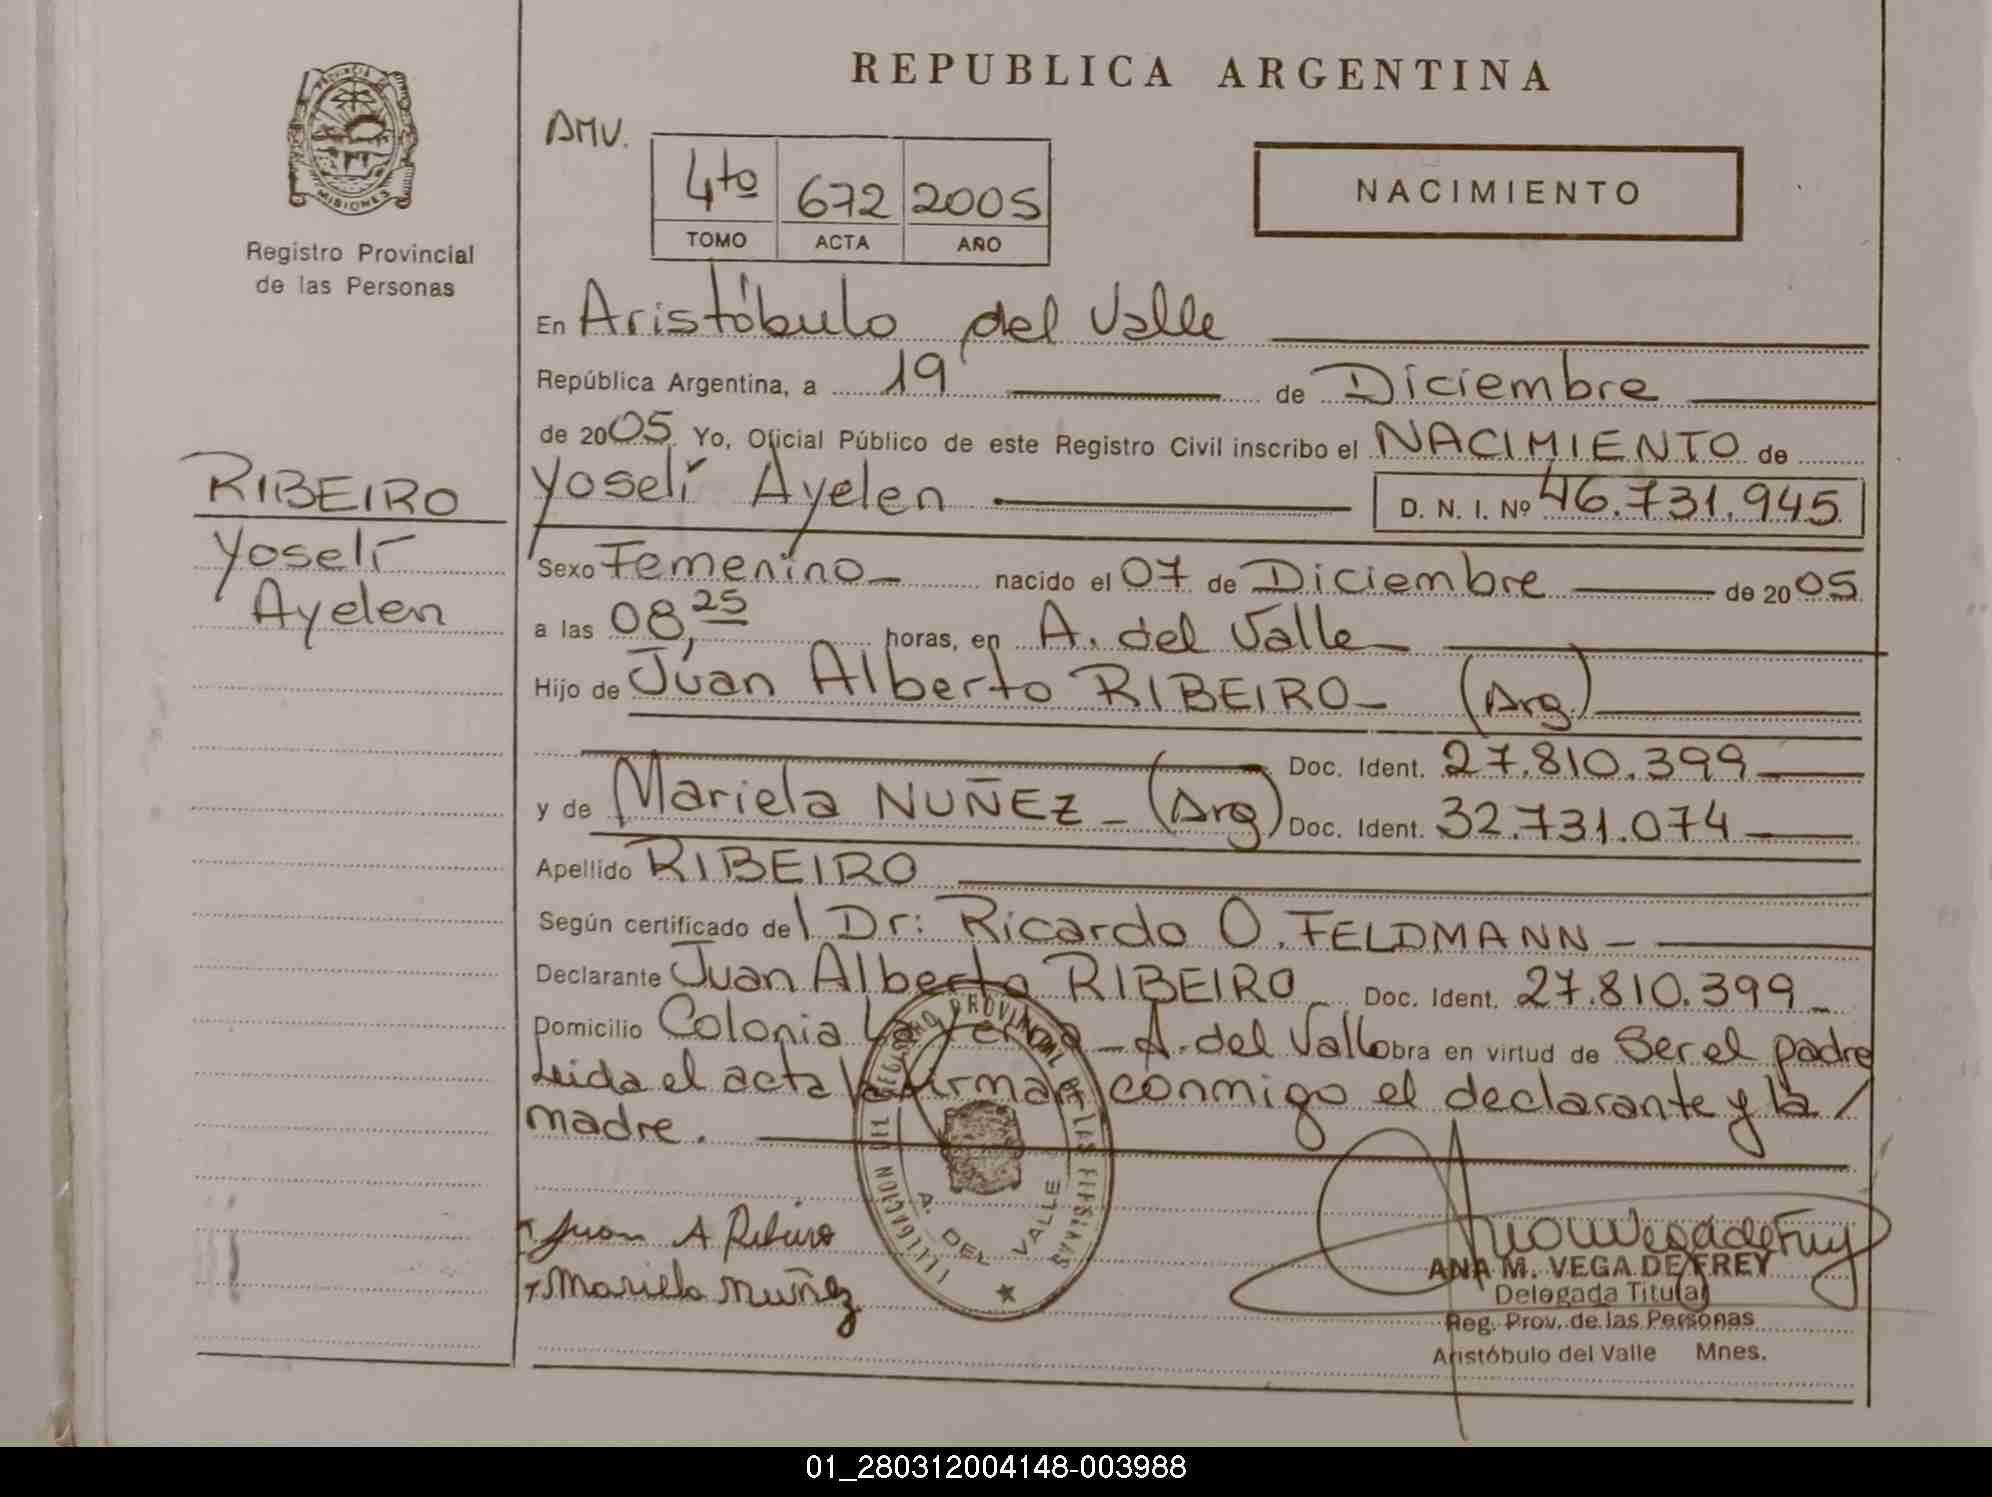 REPUBLICA ARGENTINA
PROVINCIA DE MISIONES
Registro Provincial
de las Personas
AMV.
4to 672 2005
TOMO ACTA AÑO
NACIMIENTO
En Aristóbulo del Valle
República Argentina, a 19 de Diciembre
de 2005 Yo, Oficial Público de este Registro Civil inscribo el NACIMIENTO de
RIBEIRO
Yoselí
Ayelen
Yoselí Ayelen D. N. I. Nº 46.731.945
Sexo Femenino nacido el 07 de Diciembre de 2005
a las 08,25 horas, en A. del Valle
Hijo de Juan Alberto RIBEIRO (Arg)
Doc. Ident. 27.810.399
y de Mariela NUÑEZ (Arg) Doc. Ident. 32.731.074
Apellido RIBEIRO
Según certificado del Dr: Ricardo O. FELDMANN
Declarante Juan Alberto RIBEIRO Doc. Ident. 27.810.399
Domicilio Colonia La A. del Valle Obra en virtud de Ser el padre
Leida el acta la firman conmigo el declarante y la /
madre.
DEL REGISTRO PROVINCIAL DE LAS PERSONAS
A. DEL VALLE
Juan A Ribeiro
Mariela Nuñez
Ana M Vega de Frey
ANA M. VEGA DE FREY
Delegada Titular
Reg. Prov. de las Personas
Aristóbulo del Valle Mnes.
01_280312004148-003988